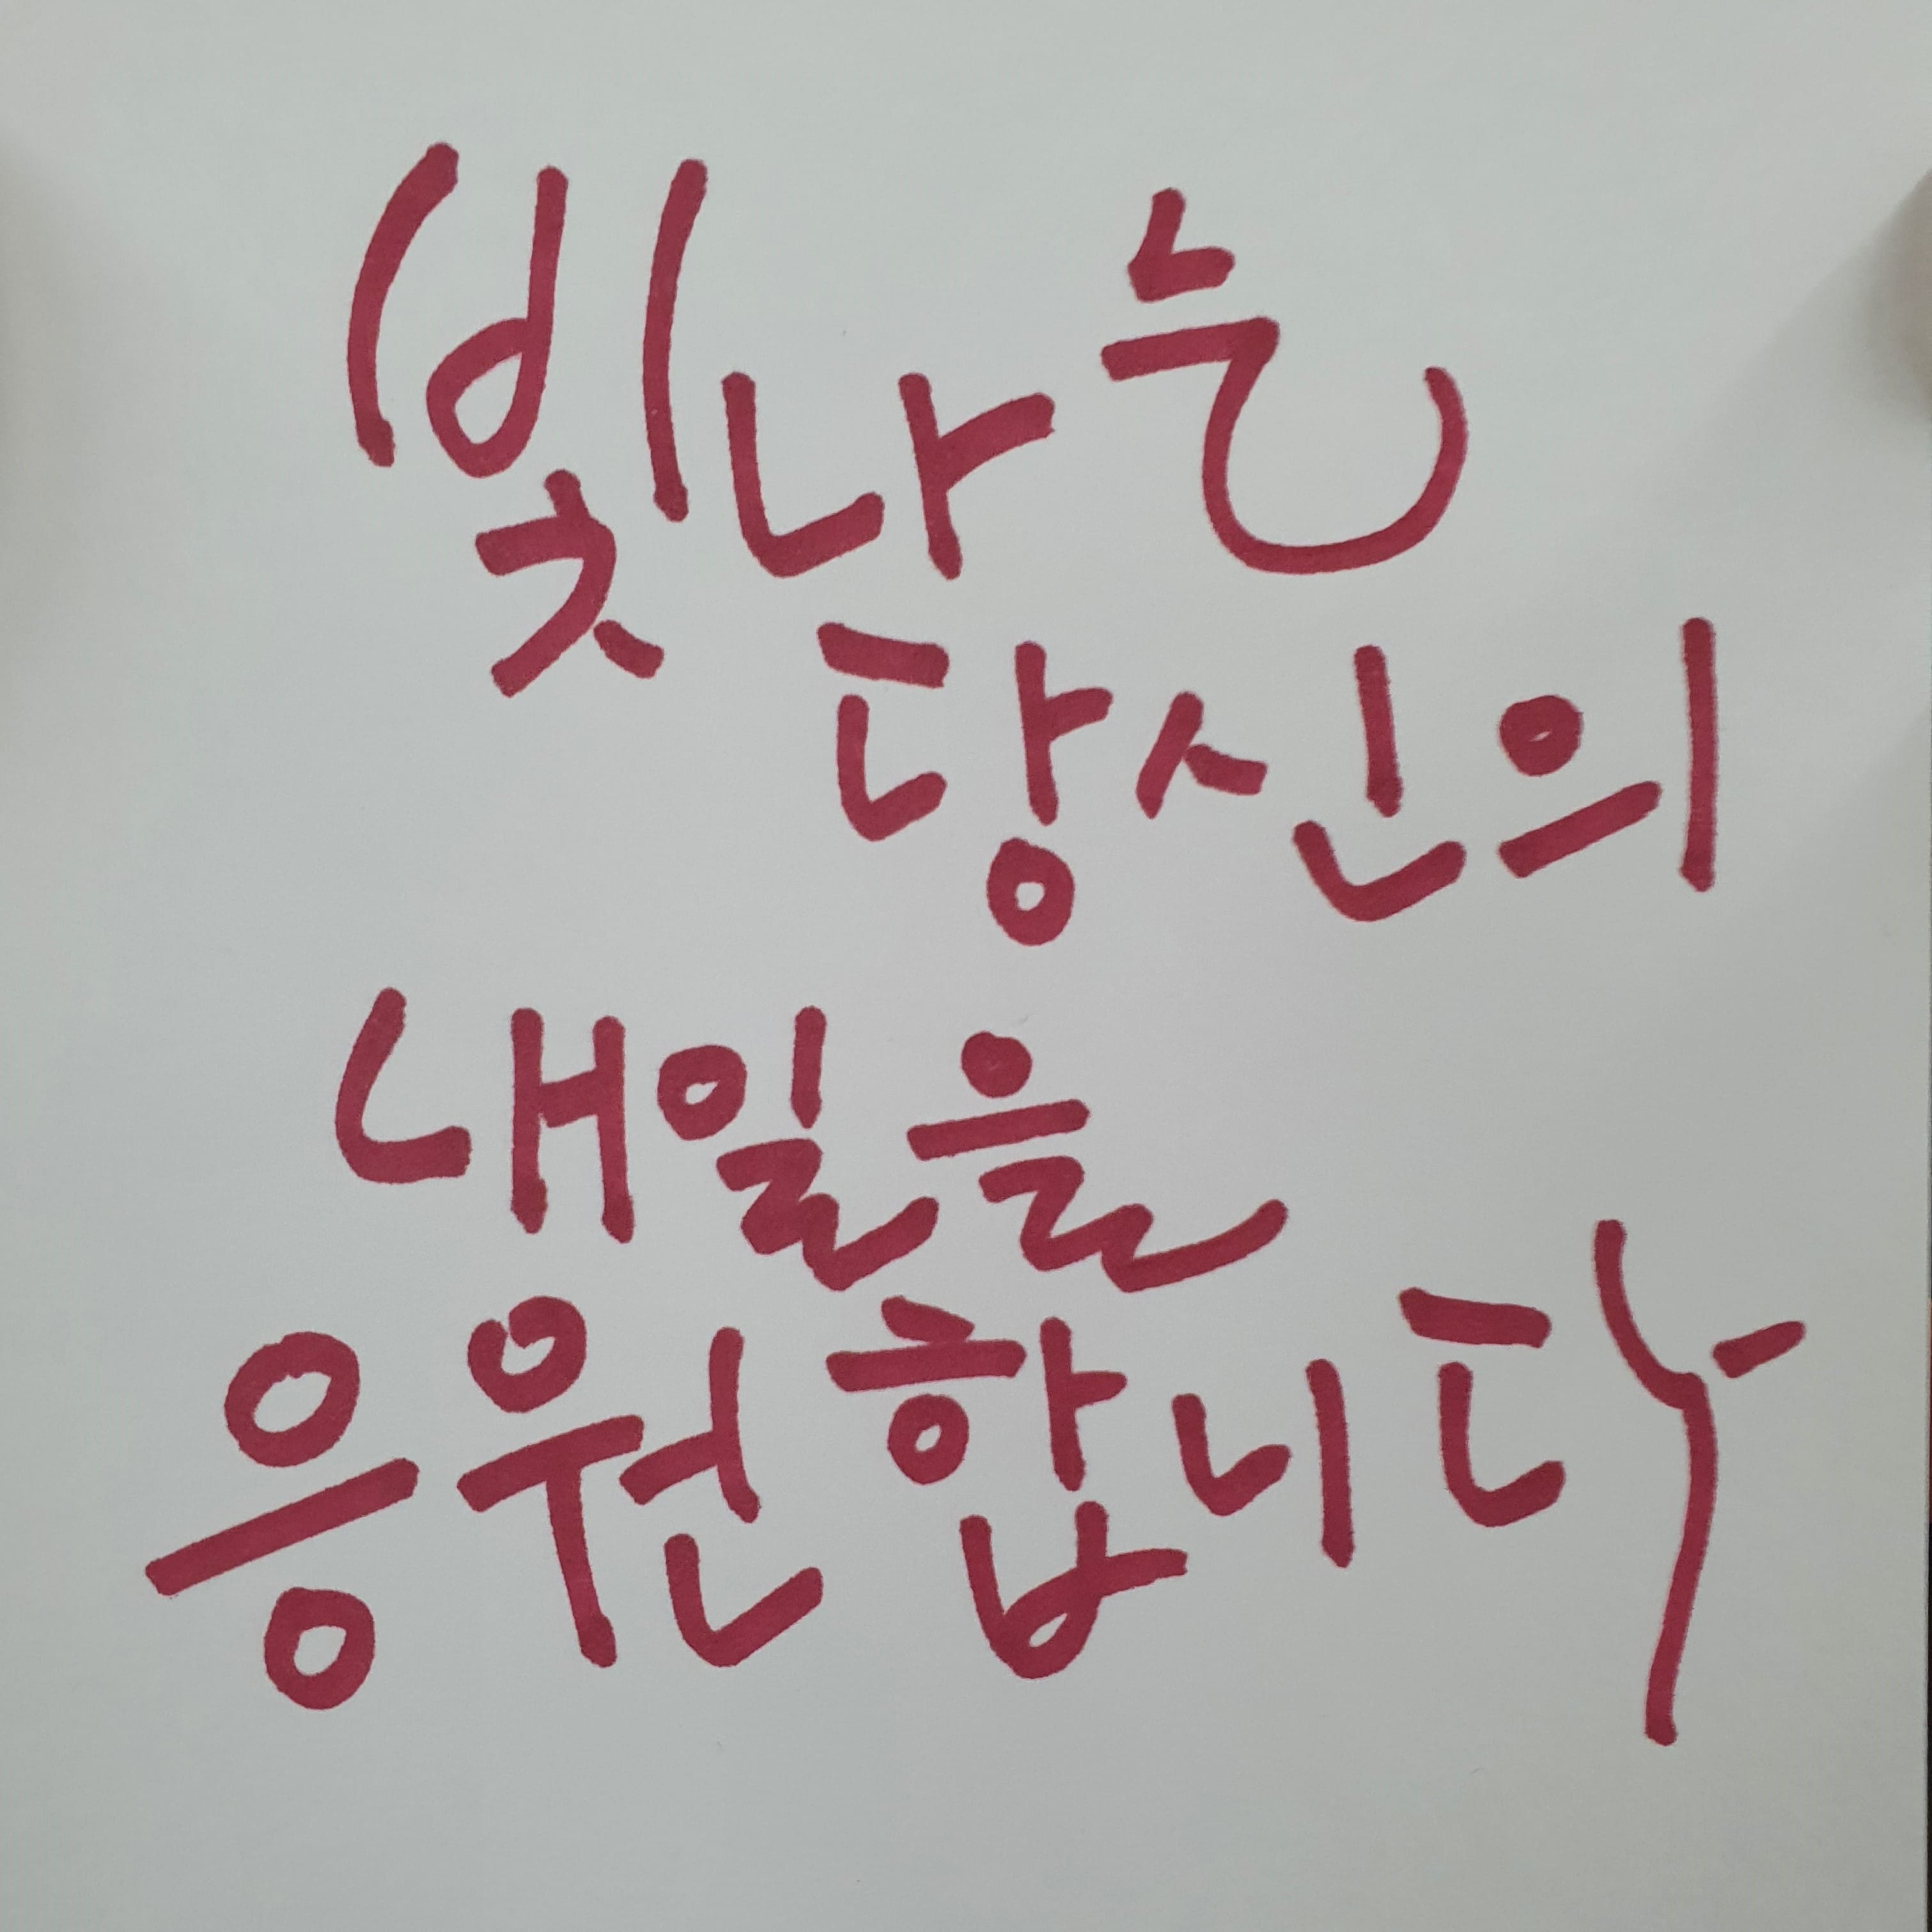 빛나는
당신의
내일을
응원합니다